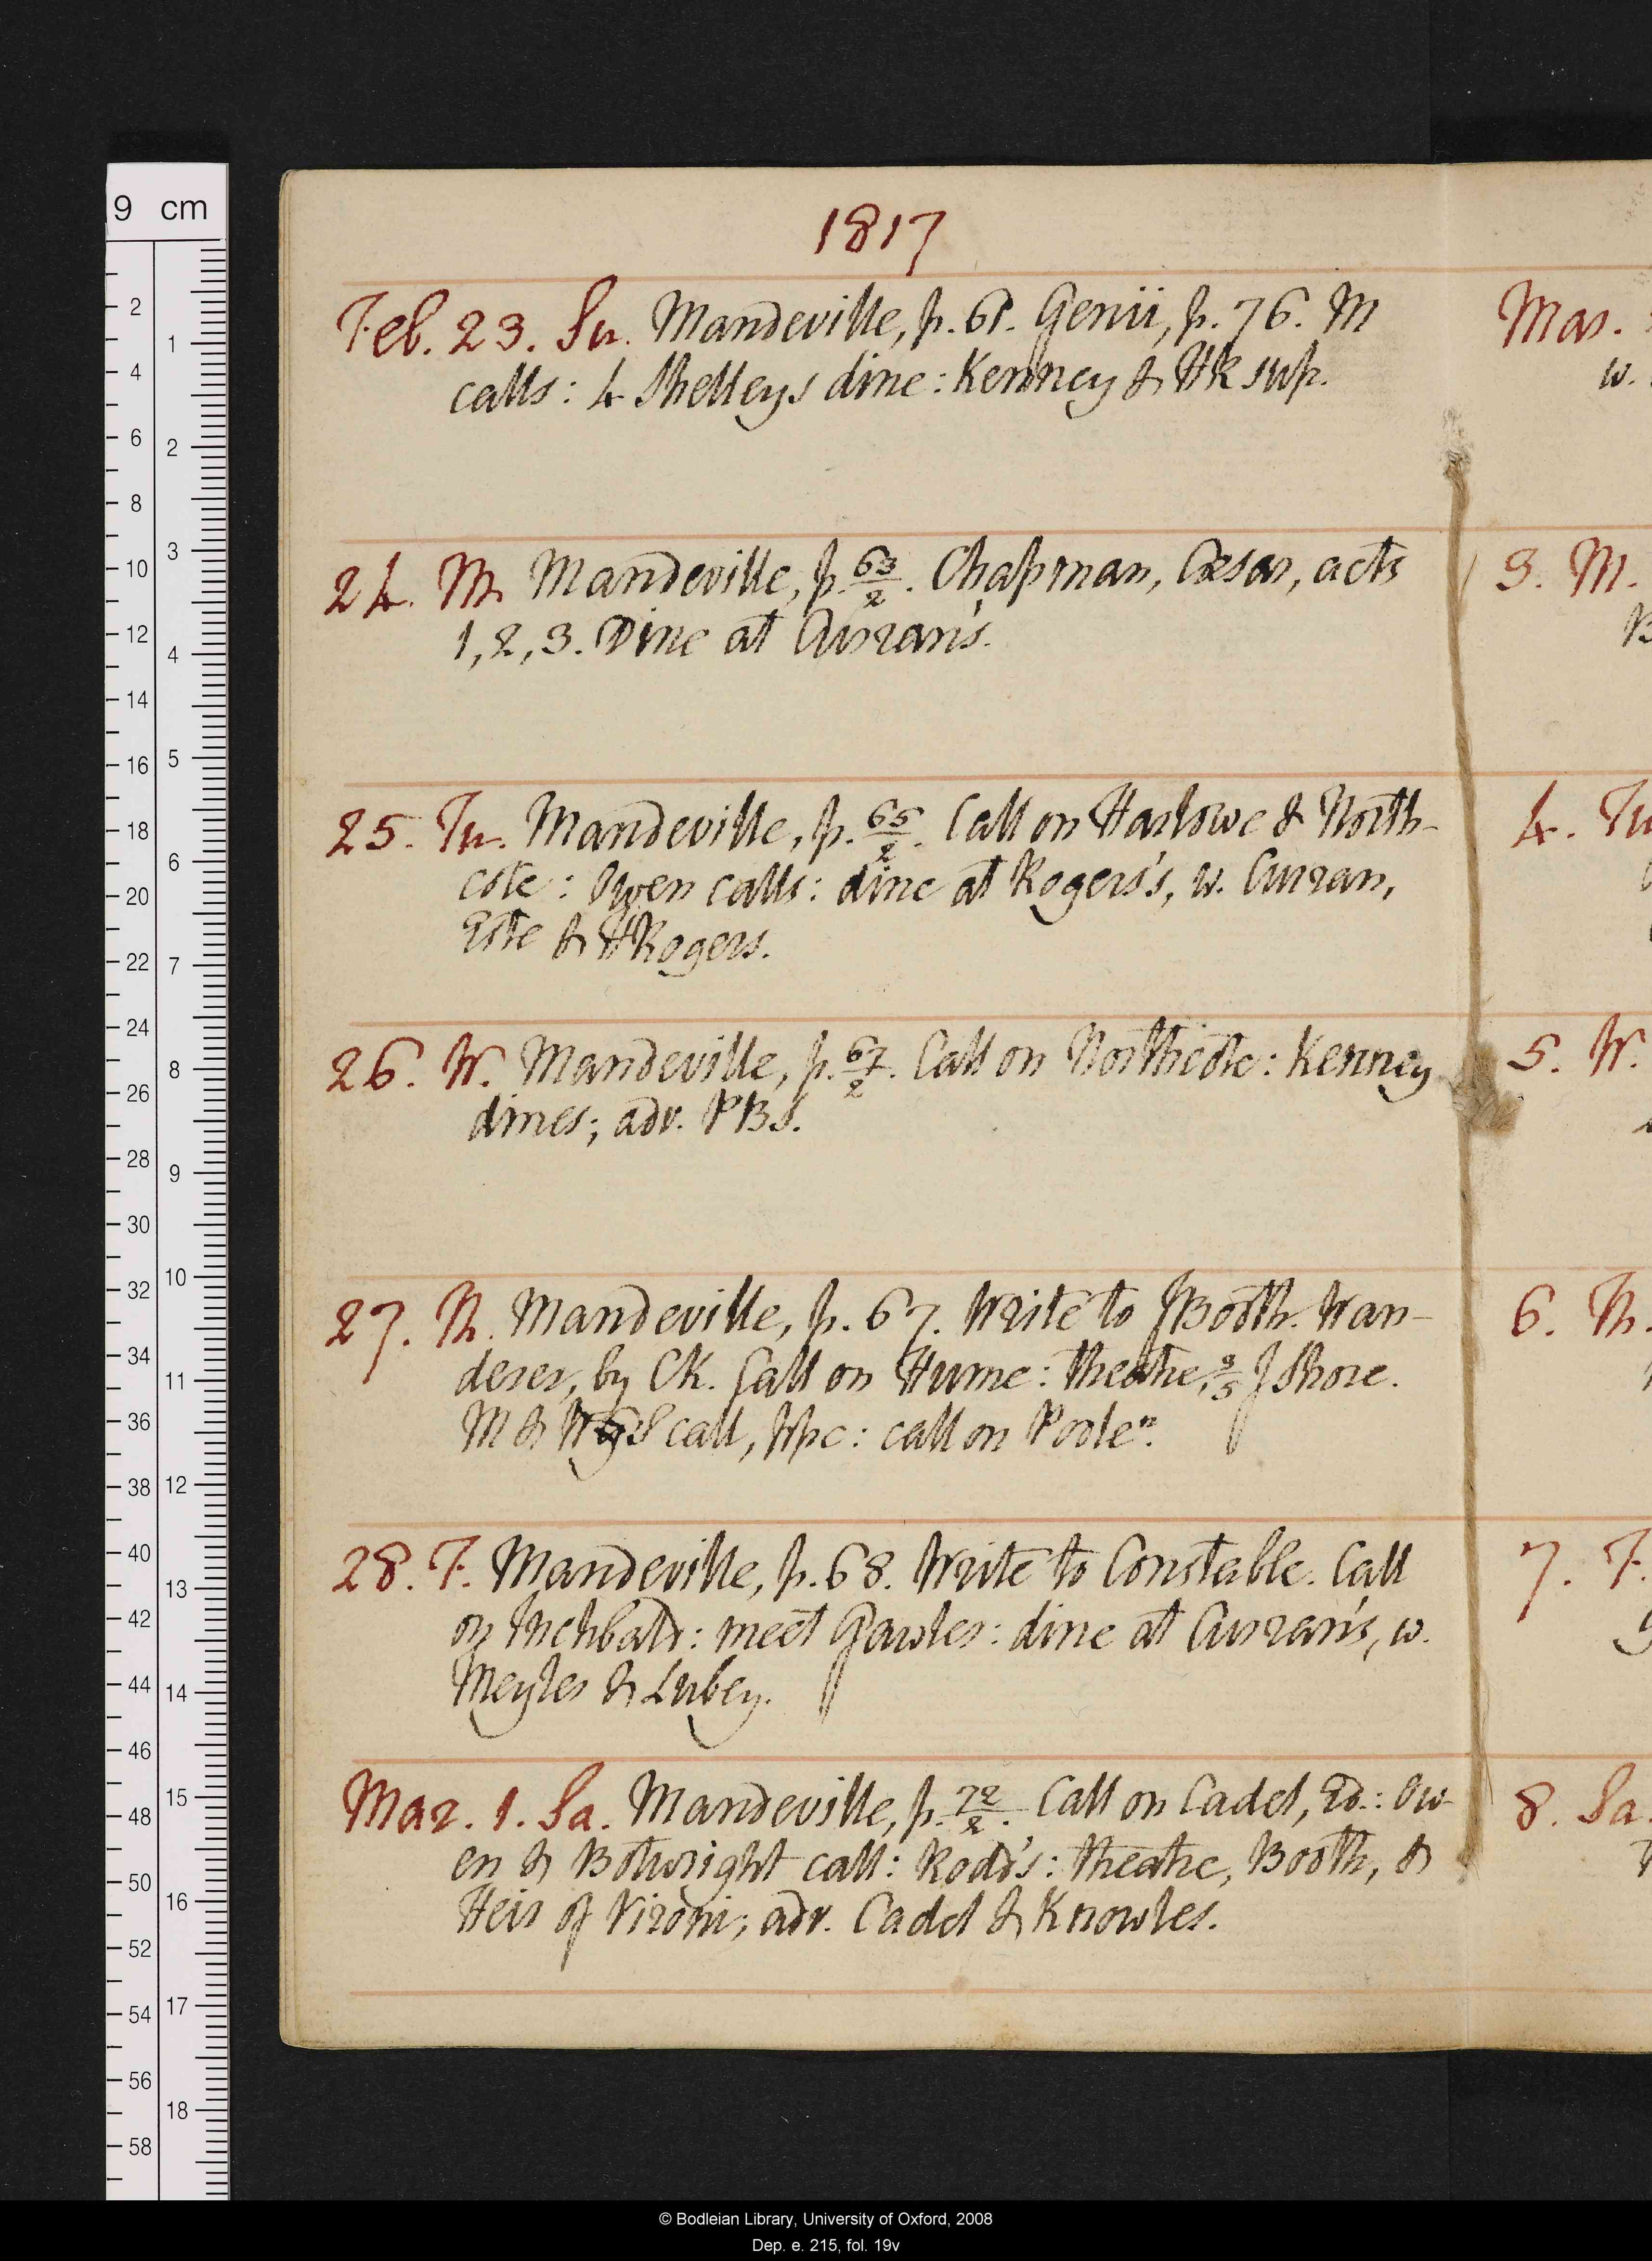 1817
Feb. 23. Su. Mandeville, p. 61. Genii, p. 76. M
calls: 4 Shelleys dine: Kenney & HR sup.
24. M. Mandeville, p. 63/2. Chapman, Cæsar, acts
1, 2, 3. Dine at Curran's.
25. Tu. Mandeville, p. 65/2. Call on Harlowe & North-
cote: Owen calls: dine at Rogers's, w. Curran,
Este & HRogers.
26. W. Mandeville, p. 67/2. Call on Northcote: Kenney
dines; adv. PBS.
27. Th. Mandeville, p. 67. Write to JBooth. Wan-
derer, by CK. Call on Hume: theatre, 3/5 J Shore.
M & call, npc: call on Poole n.
28. F. Mandeville, p. 68. Write to Constable. Call
on Inchbald: meet Gawler: dine at Curran's, w.
Meyler & Lubey.
Mar. 1. Sa. Mandeville, p. 72/2. Call on Cadel, : Ow-
en & Botwright call: Rodd's: theatre, Booth, &
Heir of Vironi; adv. Cadel & Knowles.
Mar.
w.
3. M.
B
4. Tu
5. W.
6. Th.
7. F.
8. Sa.
9 cm
2 4 6 8 10 12 14 16 18 20 22 24 26 28 30 32 34 36 38 40 42 44 46 48 50 52 54 56 58
1 2 3 4 5 6 7 8 9 10 11 12 13 14 15 16 17 18
© Bodleian Library, University of Oxford, 2008
Dep. e. 215, fol. 19v